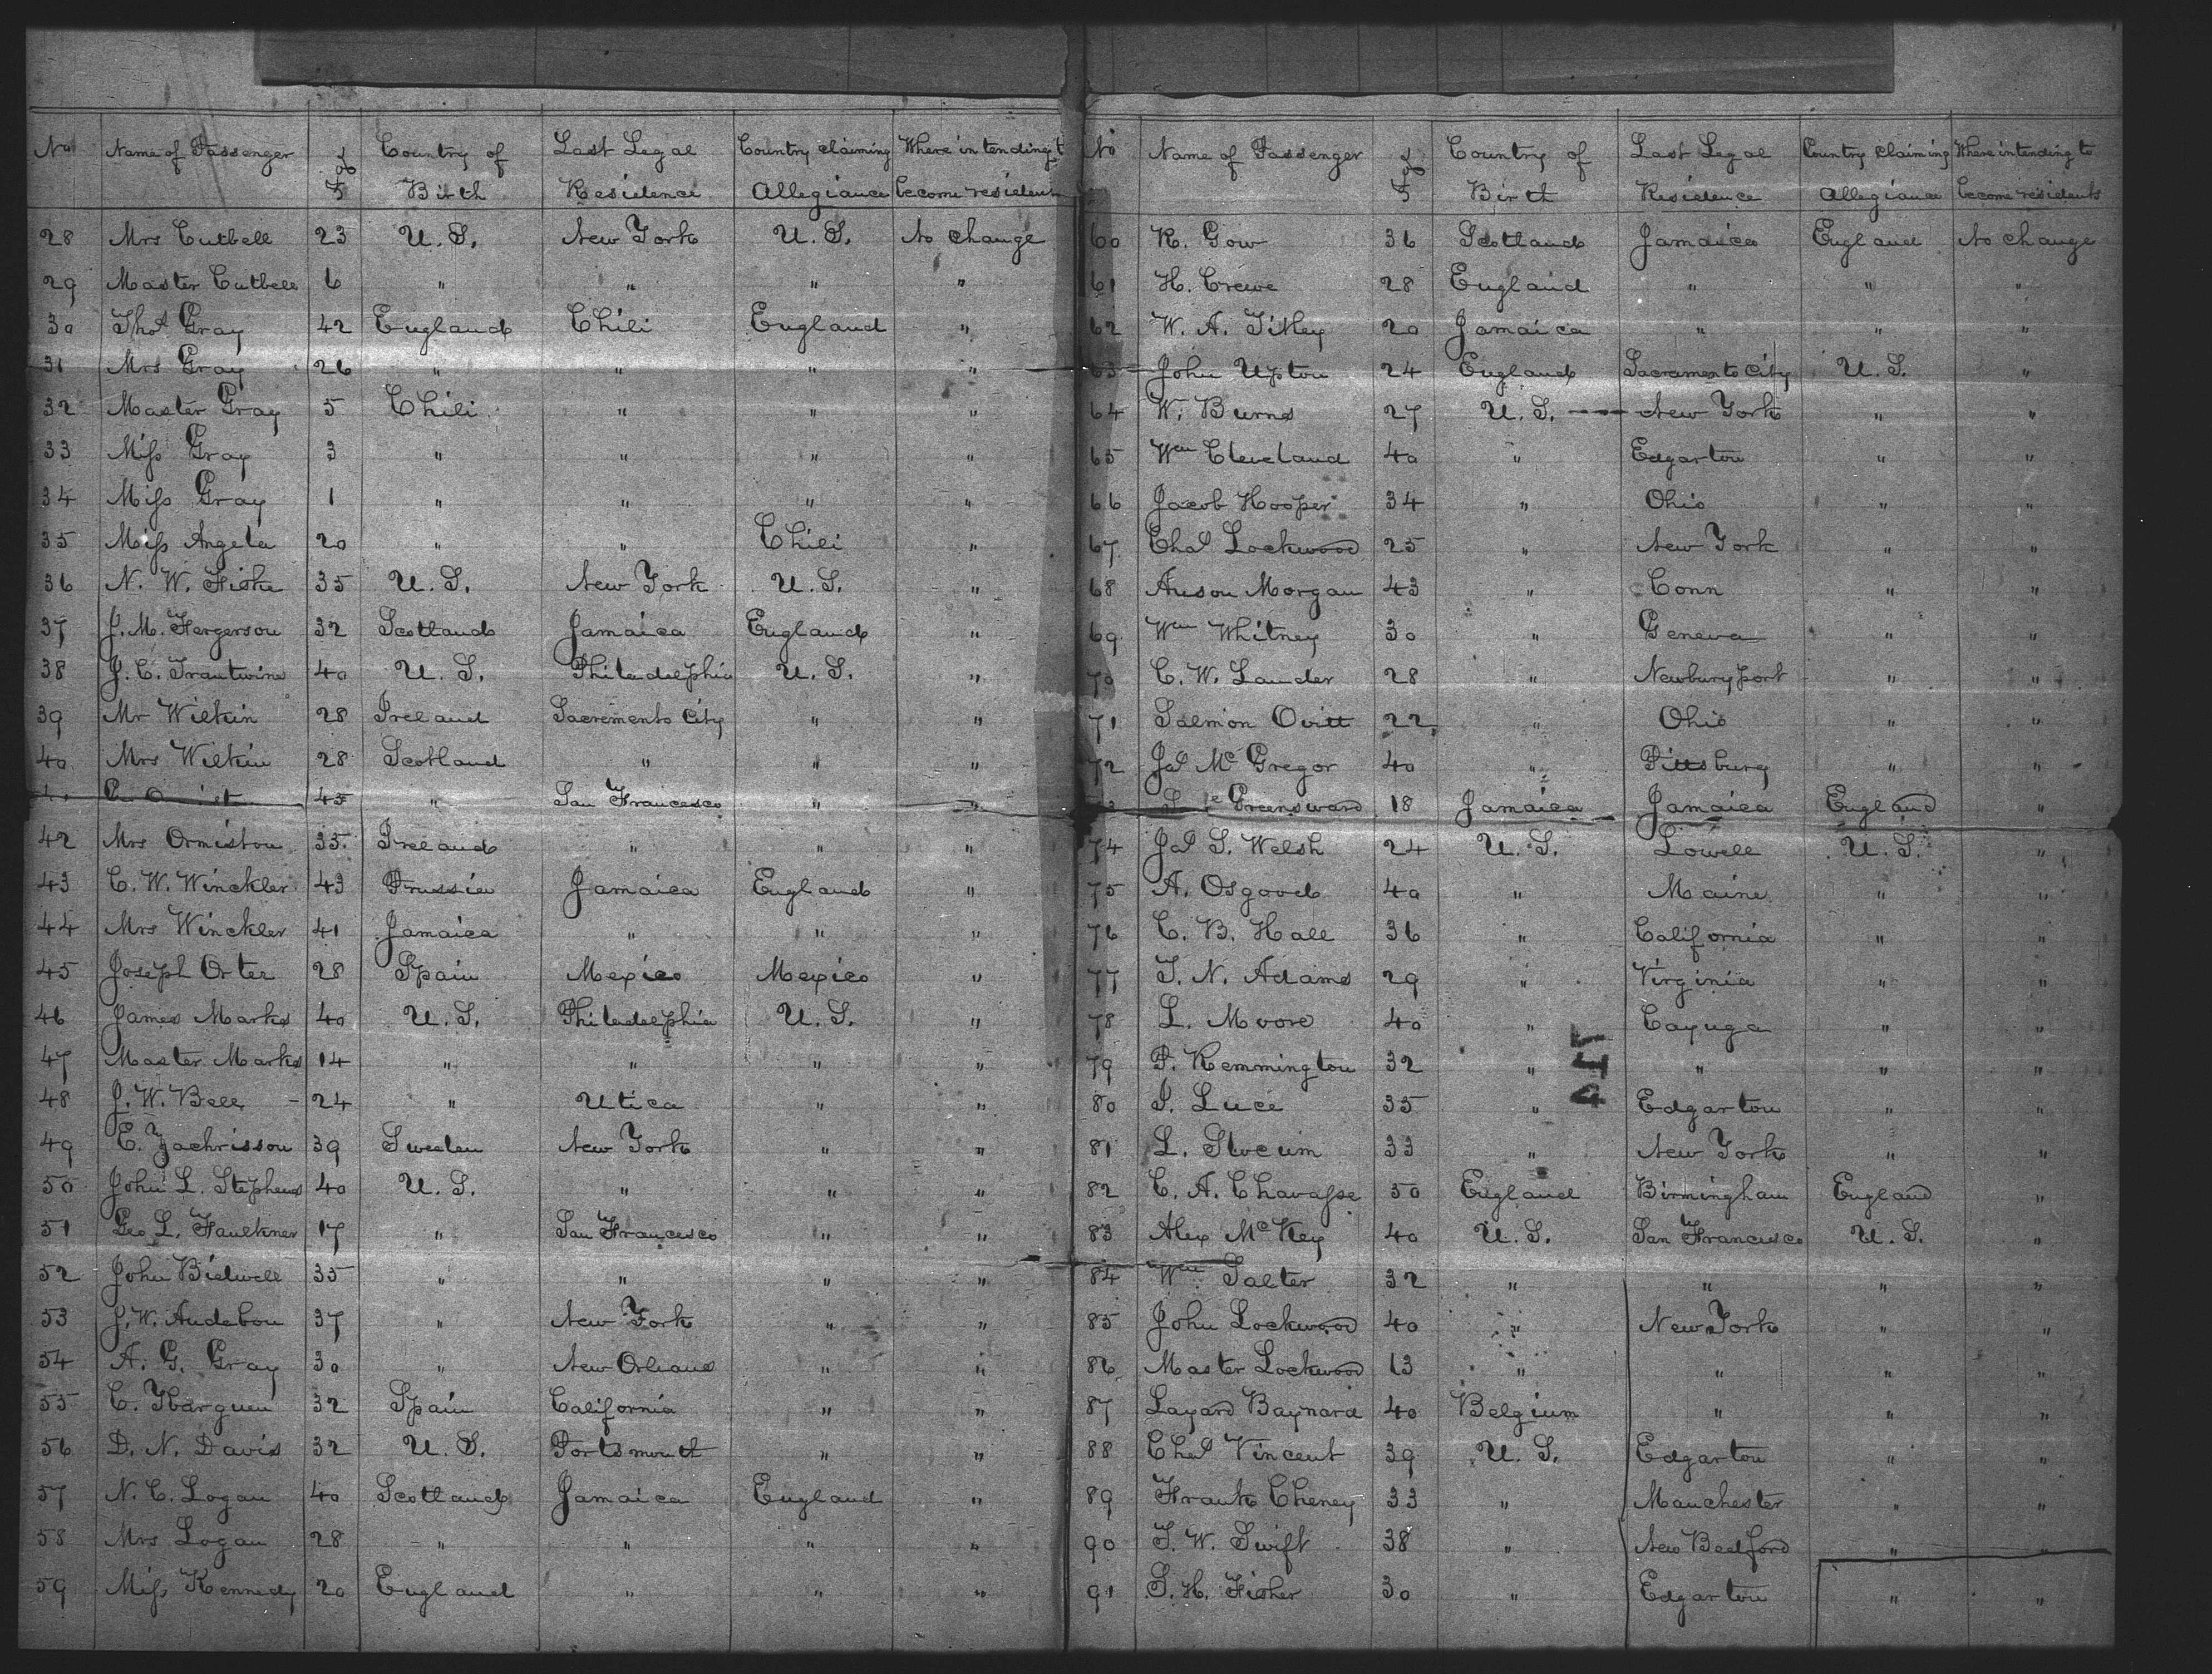 No Name of Passenger Age Country of Birth Last Legal Residence Country claiming Allegiance Where intending to become residents
28 Mrs Cutbell 23 U.S. New York U.S. No change
29 Master Cutbell 6 " " " "
30 Thos Gray 42 England Chili England "
31 Mrs Gray 26 " " " "
32 Master Gray 5 Chili " " "
33 Miss Gray 3 " " " "
34 Miss Gray 1 " " " "
35 Miss Angela 20 " " Chili "
36 N. W. Fiske 35 U.S. New York U.S. "
37 J. M. Fergerson 32 Scotland Jamaica England "
38 J. C. Trautwine 40 U.S. Philadelphia U.S. "
39 Mr Wilkin 28 Ireland Sacremento City " "
40 Mrs Wilkin 28 Scotland " " "
45 " San Francesco " "
42 Mrs Ormiston 35 Ireland " " "
43 C. W. Winckler 43 Prussia Jamaica England "
44 Mrs Winckler 41 Jamaica " " "
45 Joseph Orter 28 Spain Mexico Mexico "
46 James Marks 40 U.S. Philadelphia U.S. "
47 Master Marks 14 " " " "
48 J. W. Bell 24 " Utica " "
49 E. Zachrisson 39 Sweden New York " "
50 John L. Stephens 40 U.S. " " "
51 Geo L. Faulkner 17 " San Francesco " "
52 John Bidwell 35 " " " "
53 J. W. Audebon 37 " New York " "
54 A. G. Gray 30 " New Orleans " "
55 C. 32 Spain California " "
56 D. N. Davis 32 U.S. Portsmouth " "
57 N. C. Logan 40 Scotland Jamaica England "
58 Mrs Logan 28 " " " "
59 Miss Kennedy 20 England " " "
No Name of Passenger Age Country of Birth Last Legal Residence Country claiming Allegiance Where intending to become residents
60 R. Gow 36 Scotland Jamaica England No change
61 H. Crewe 28 England " " "
62 W. A. Titley 20 Jamaica " " "
63 John Upton 24 England Sacramento City U.S. "
64 W. Burns 27 U.S. New York " "
65 Wm Cleveland 40 " Edgarton " "
66 Jacob Hooper 34 " Ohio " "
67 Chas Lockwood 25 " New York " "
68 Anson Morgan 43 " Conn " "
69 Wm Whitney 30 " Geneva " "
70 C. W. Lander 28 " Newburyport " "
71 Salmon Ovitt 22 " Ohio " "
72 Jas McGregor 40 " Pittsburg " "
Greensward 18 Jamaica Jamaica England "
74 Jas S. Welsh 24 U.S. Lowell U.S. "
75 A. Osgood 40 " Maine " "
76 C. B. Hall 36 " California " "
77 T. N. Adams 29 " Virginia " "
78 L. Moore 40 " Cayuga " "
79 P. Remmington 32 " " " "
80 J. Luce 35 " Edgarton " "
81 L. Slocum 33 " New York " "
82 C. A. Chavasse 50 England Birmingham England "
83 Alex McKey 40 U.S. San Francesco U.S. "
84 Wm Salter 32 " " " "
85 John Lockwood 40 " New York " "
86 Master Lockwood 13 " " " "
87 Layard Baynard 40 Belgium " " "
88 Chas Vincent 39 U.S. Edgarton " "
89 Frank Cheney 33 " Manchester " "
90 T. W. Swift 38 " New Bedford " "
91 S. H. Fisher 30 " Edgarton " "